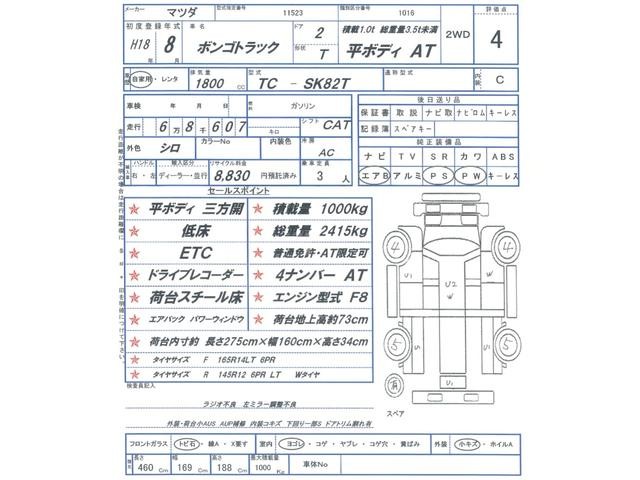 メーカー マツダ 型式指定番号 11523 類別区分番号 1016 評価点
初度登録年式 車名 ドア 2 積載1.0t 総重量3.5t未満 2WD 4
H18 年 8 月 ボンゴトラック 形状 T 平ボディ AT
車歴 自家用・レンタ 排気量 1800 CC 型式 TC - SK82T 通称型式 内装 C
車検 年 月 日 燃料 ガソリン 後日送り品
走行 6万8千607 キロ シフト CAT 保証書 取説 ナビ取 ナビロム キーレス
記録簿 スペアキー
外色 シロ カラーNo 内装色 冷房 AC 純正装備品
ハンドル 輸入区分 リサイクル料金 乗車定員 ナビ TV SR カワ ABS
右・左 ディーラー・並行 8,830 円預託済み 3 人 エアB アルミ PS PW キーレス
セールスポイント
★ 平ボディ 三方開 ★ 積載量 1000kg
★ 低床 ★ 総重量 2415kg
★ ETC ★ 普通免許・AT限定可
★ ドライブレコーダー ★ 4ナンバー AT
★ 荷台スチール床 ★ エンジン型式 F8
★ エアバック パワーウィンドウ ★ 荷台地上高約73cm
★ 荷台内寸約 長さ275cm×幅160cm×高さ34cm
★ タイヤサイズ F 165R14LT 6PR
★ タイヤサイズ R 145R12 6PR LT Wタイヤ
検査員記入
ラジオ不良 左ミラー調整不良
外装・荷台小AUS AUP補修 内装コキズ 下回り一部S ドアトリム割れ有
4 4
U2 W W
5 5
U1 U1
スペア
フロントガラス トビ石・線A・X要す 室内 ヨゴレ・コゲ・ヤブレ・コゲ穴・黄ばみ 外装 小キズ・ホイルA
長さ 460 Cm 幅 169 Cm 高さ 188 Cm 最大積載量 1000 Kg 車体No